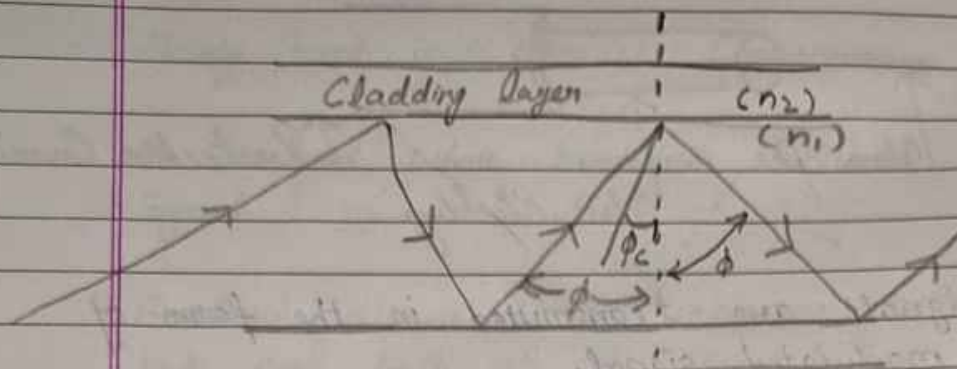 Cladding layer (n2)
(n1)
ϕc
ϕ
ϕ